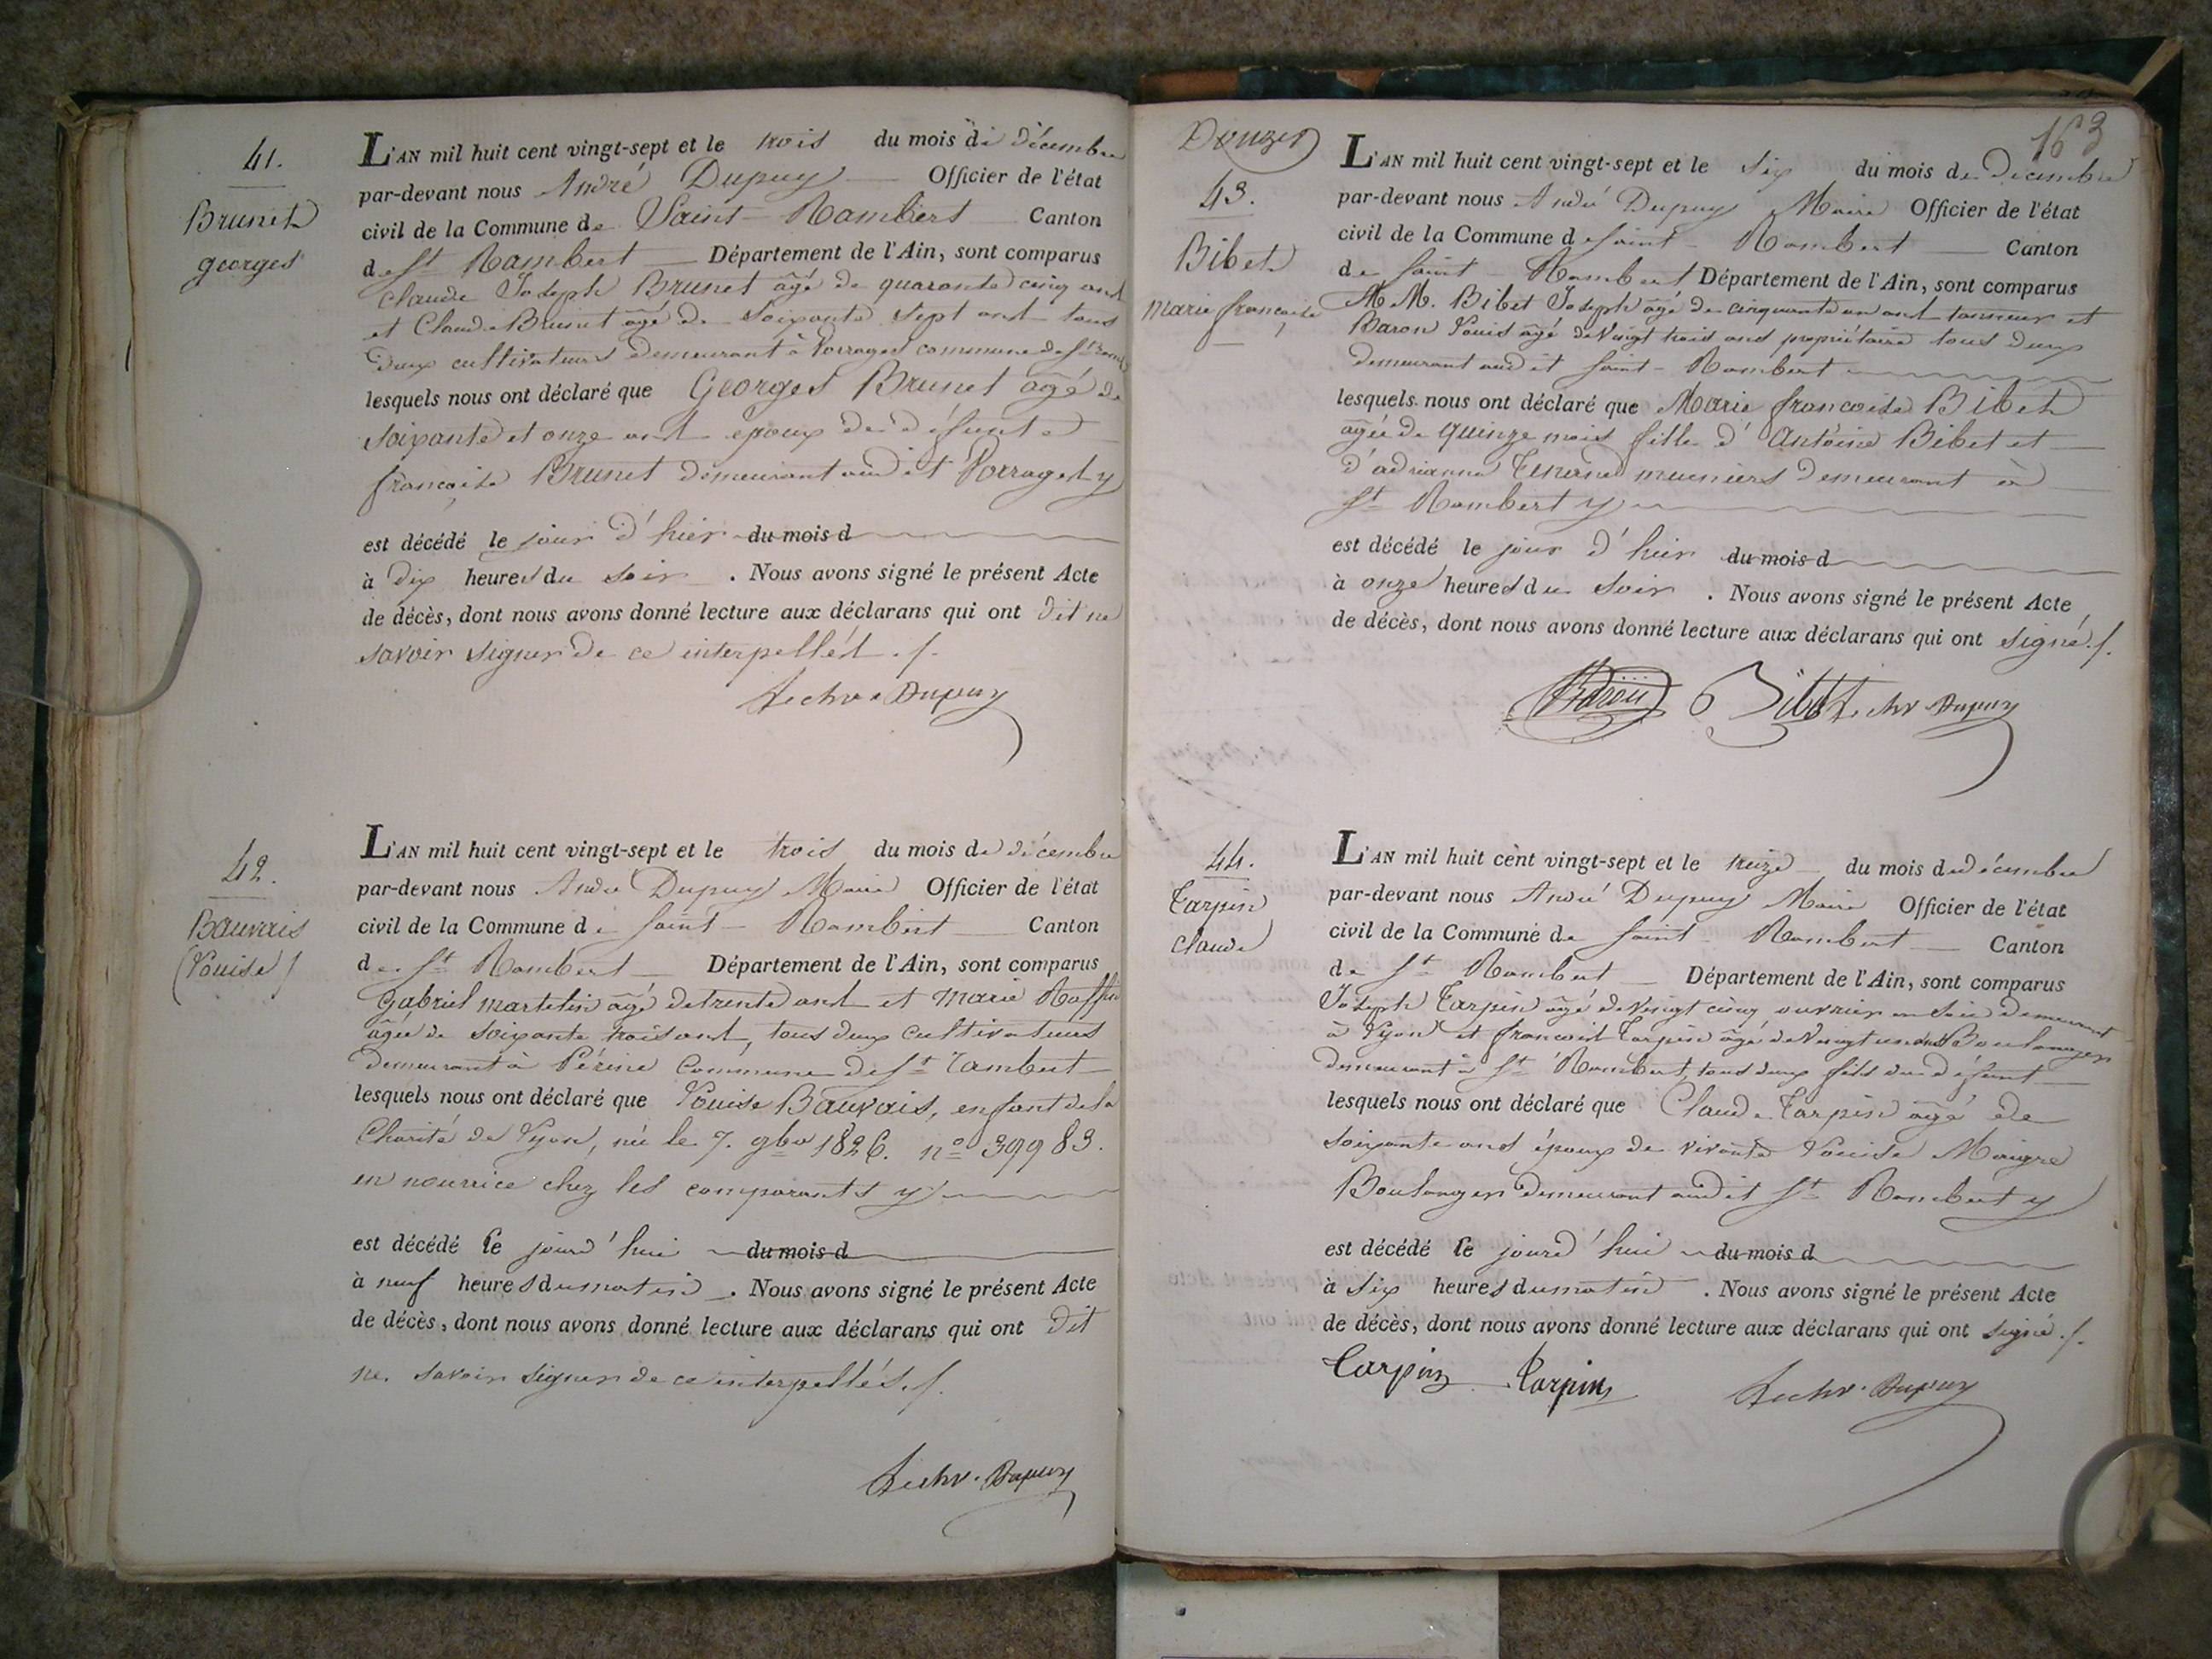 41.
Brunet
georges
L'AN mil huit cent vingt-sept et le trois du mois de décembre
par-devant nous André Dupuy Officier de l'état
civil de la Commune de Saint-Rambert Canton
de St Rambert Département de l'Ain, sont comparus
Claude Joseph Brunet âgé de quarante cinq ans
et Claude Brunet âgé de soixante sept ans tous
deux cultivateurs demeurant à Vorrages commune de St Ramb
lesquels nous ont déclaré que Georges Brunet âgé de
soixante et onze ans époux de défunte
françoise Brunet demeurant audit Vorrages y
est décédé le jour d'hier du mois d
à dix heures du soir . Nous avons signé le présent Acte
de décès, dont nous avons donné lecture aux déclarans qui ont dit ne
savoir signer de ce interpellés ./.
Dupuy
42.
Bauvais
(Louise)
L'AN mil huit cent vingt-sept et le trois du mois de décembre
par-devant nous André Dupuy Maire Officier de l'état
civil de la Commune de saint-Rambert Canton
de St Rambert Département de l'Ain, sont comparus
Gabriel martelin âgé de trente ans et Marie Roffin
âgée de soixante trois ans, tous deux cultivateurs
demeurant à Périné Commune de St Rambert
lesquels nous ont déclaré que Louise Bauvais, enfant de la
Charité de Lyon, née le 7. 9bre 1826. no 39983.
en nourrice chez les comparants y
est décédé le jourd'hui du mois d
à neuf heures du matin . Nous avons signé le présent Acte
de décès, dont nous avons donné lecture aux déclarans qui ont dit
ne savoir signer de ce interpellés ./.
Dupuy
163
Douzer
43.
Bibet
Marie françoise
L'AN mil huit cent vingt-sept et le six du mois de Décembre
par-devant nous André Dupuy Maire Officier de l'état
civil de la Commune de saint-Rambert Canton
de saint-Rambert Département de l'Ain, sont comparus
M M. Bibet Joseph âgé de cinquante un ans tanneur et
Baron Louis âgé de vingt trois ans propriétaire tous deux
demeurant audit saint-Rambert
lesquels nous ont déclaré que Marie françoise Bibet
agée de quinze mois fille d'Antoine Bibet et
d'adrianne meuniers demeurant à
St Rambert y
est décédé le jour d'hier du mois d
à onze heures du soir . Nous avons signé le présent Acte
de décès, dont nous avons donné lecture aux déclarans qui ont signé ./.
Baron Bibet Dupuy
44.
Tarpin
Claude
L'AN mil huit cent vingt-sept et le treize du mois de décembre
par-devant nous André Dupuy Maire Officier de l'état
civil de la Commune de saint-Rambert Canton
de St Rambert Département de l'Ain, sont comparus
Joseph Tarpin agé de vingt cinq ouvrier en soie demeurant
à Lyon et françois Tarpin âgé de vingt un ans Boulanger
demeurant à St Rambert, tous deux fils du défunt
lesquels nous ont déclaré que Claude Tarpin âgé de
soixante ans époux de vivante Louise Maigre
Boulanger demeurant audit St Rambert y
est décédé le jourd'hui du mois d
à six heures du matin . Nous avons signé le présent Acte
de décès, dont nous avons donné lecture aux déclarans qui ont signé ./.
Tarpin Tarpin Dupuy